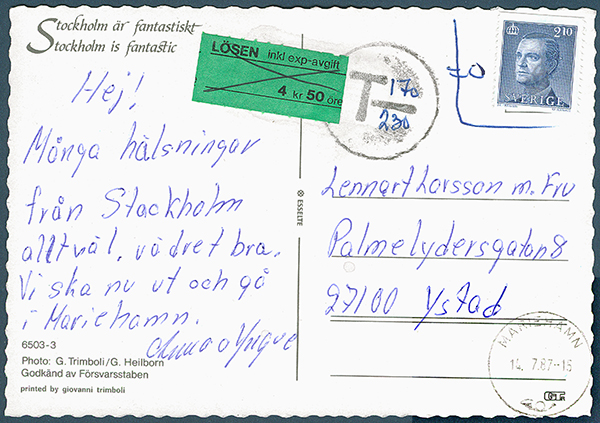 Stockholm är fantastiskt
Stockholm is fantastic
LÖSEN inkl exp-avgift
4 kr 50 öre
T
170
230
70
210
SVERIGE
Hej!
Många hälsningar
från Stockholm
allt väl, vädret bra.
Vi ska nu ut och gå
i Mariehamn.
Anna o Yngve
ESSELTE
Lennart Larsson m. Fru
Palmelydersgatan 8
27100 Ystad
6503-3
Photo: G. Trimboli/G. Heilborn
Godkänd av Försvarsstaben
printed by giovanni trimboli
MARIEHAMN
14. 7.87-15